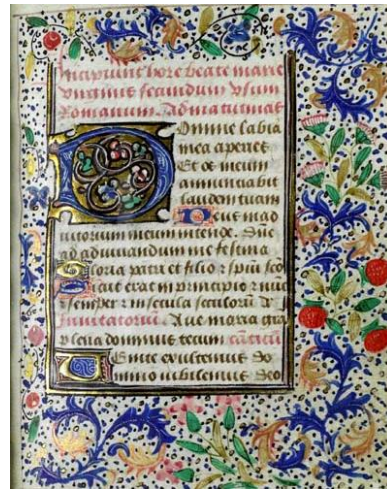 Incipiunt hore beate marie
virginis secundum usum
romanum. Ad matutinas
Domine labia
mea aperies
Et os meum
annunciabit
laudem tuam
Deus in ad
iutorium meum intende. Dne
ad adiuuandum me festina
Gloria patri et filio et spiui sco
Sicut erat in principio et nuc
et semper et in secula seculoru
Inuitatorium. Aue maria gra
plena dominus tecum
Uenite exultemus do
mino iubilemus deo